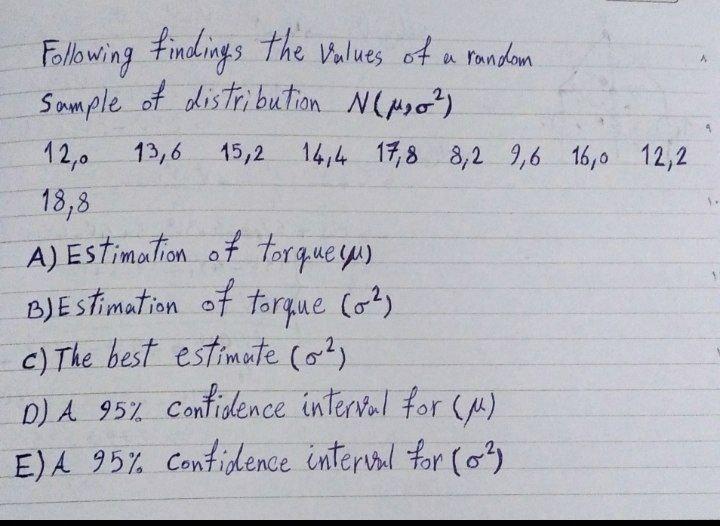 Following findings the values of a random
Sample of distribution N(μ,σ²)
12,0 13,6 15,2 14,4 17,8 8,2 9,6 16,0 12,2
18,8
A) Estimation of torque (μ)
B) Estimation of torque (σ²)
C) The best estimate (σ²)
D) A 95% Confidence interval for (μ)
E) A 95% Confidence interval for (σ²)